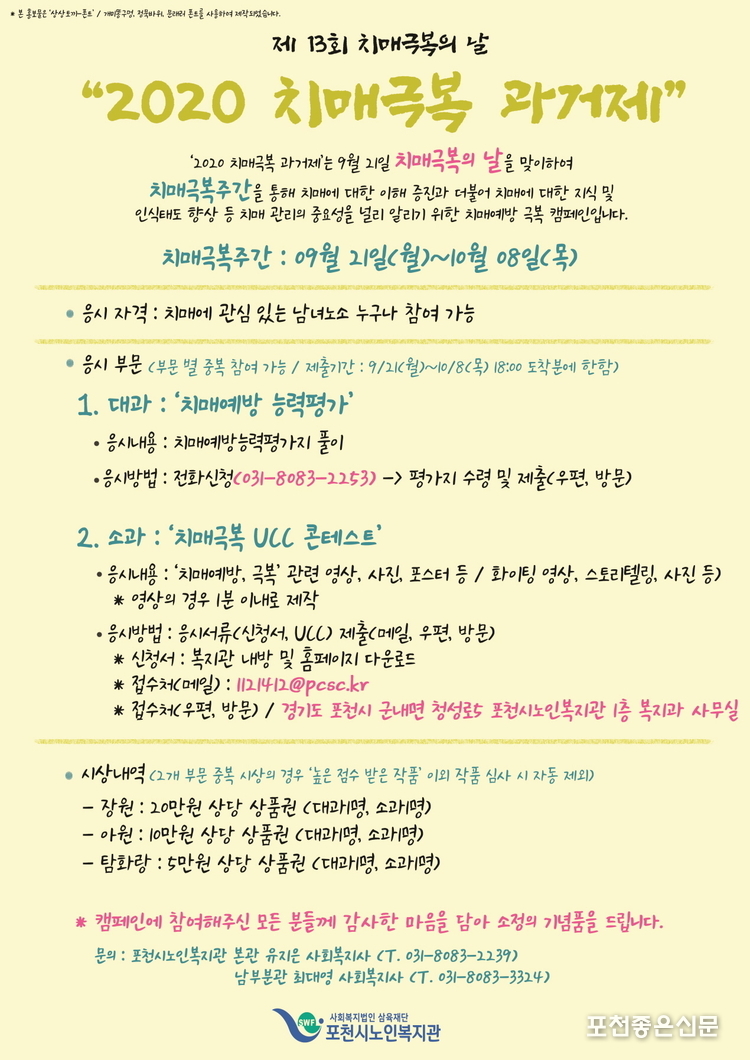 * 본 홍보물은 '상상토끼-폰트' / 개미똥구멍, 정묵바위, 문래러 폰트를 사용하여 제작되었습니다.
제 13회 치매극복의 날
“2020 치매극복 과거제”
‘2020 치매극복 과거제’는 9월 21일 치매극복의 날을 맞이하여
치매극복주간을 통해 치매에 대한 이해 증진과 더불어 치매에 대한 지식 및
인식태도 향상 등 치매 관리의 중요성을 널리 알리기 위한 치매예방 극복 캠페인입니다.
치매극복주간 : 09월 21일(월)~10월 08일(목)
• 응시 자격 : 치매에 관심 있는 남녀노소 누구나 참여 가능
• 응시 부문 (부문 별 중복 참여 가능 / 제출기간 : 9/21(월)~10/8(목) 18:00 도착분에 한함)
1. 대과 : ‘치매예방 능력평가’
• 응시내용 : 치매예방능력평가지 풀이
• 응시방법 : 전화신청(031-8083-2253) -> 평가지 수령 및 제출(우편, 방문)
2. 소과 : ‘치매극복 UCC 콘테스트’
• 응시내용 : ‘치매예방, 극복’ 관련 영상, 사진, 포스터 등 / 화이팅 영상, 스토리텔링, 사진 등)
* 영상의 경우 1분 이내로 제작
• 응시방법 : 응시서류(신청서, UCC) 제출(메일, 우편, 방문)
* 신청서 : 복지관 내방 및 홈페이지 다운로드
* 접수처(메일) : 1121412@pcsc.kr
* 접수처(우편, 방문) / 경기도 포천시 군내면 청성로5 포천시노인복지관 1층 복지과 사무실
• 시상내역 (2개 부문 중복 시상의 경우 ‘높은 점수 받은 작품’ 이외 작품 심사 시 자동 제외)
- 장원 : 20만원 상당 상품권 (대과1명, 소과1명)
- 아원 : 10만원 상당 상품권 (대과1명, 소과1명)
- 탐화랑 : 5만원 상당 상품권 (대과1명, 소과1명)
* 캠페인에 참여해주신 모든 분들께 감사한 마음을 담아 소정의 기념품을 드립니다.
문의 : 포천시노인복지관 본관 유지은 사회복지사 (T. 031-8083-2239)
남부분관 최대영 사회복지사 (T. 031-8083-3324)
SWF 사회복지법인 삼육재단
포천시노인복지관
포천좋은신문